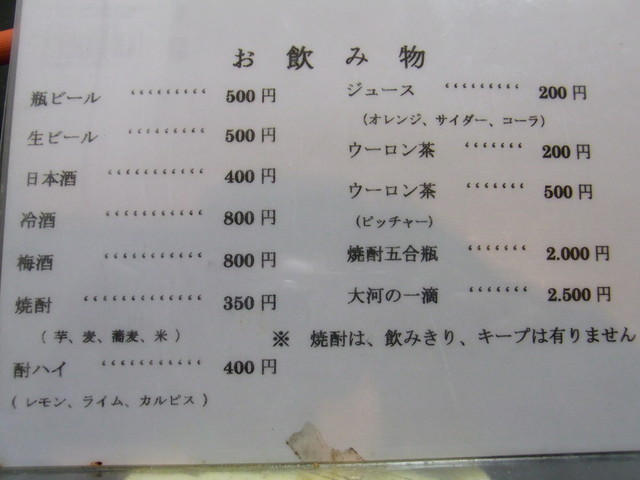 お飲み物
瓶ビール ‘‘‘‘‘‘‘‘‘ 500円
生ビール ‘‘‘‘‘‘‘‘‘ 500円
日本酒 ‘‘‘‘‘‘‘‘‘‘‘ 400円
冷酒 ‘‘‘‘‘‘‘‘‘‘‘ 800円
梅酒 ‘‘‘‘‘‘‘‘‘‘‘ 800円
焼酎 ‘‘‘‘‘‘‘‘‘‘‘‘‘ 350円
(芋、麦、蕎麦、米)
酎ハイ ‘‘‘‘‘‘‘‘‘‘‘ 400円
(レモン、ライム、カルピス)
ジュース ‘‘‘‘‘‘‘‘‘ 200円
(オレンジ、サイダー、コーラ)
ウーロン茶 ‘‘‘‘‘‘‘ 200円
ウーロン茶 ‘‘‘‘‘‘‘ 500円
(ピッチャー)
焼酎五合瓶 ‘‘‘‘‘‘‘ 2.000円
大河の一滴 ‘‘‘‘‘‘‘ 2.500円
※ 焼酎は、飲みきり、キープは有りません